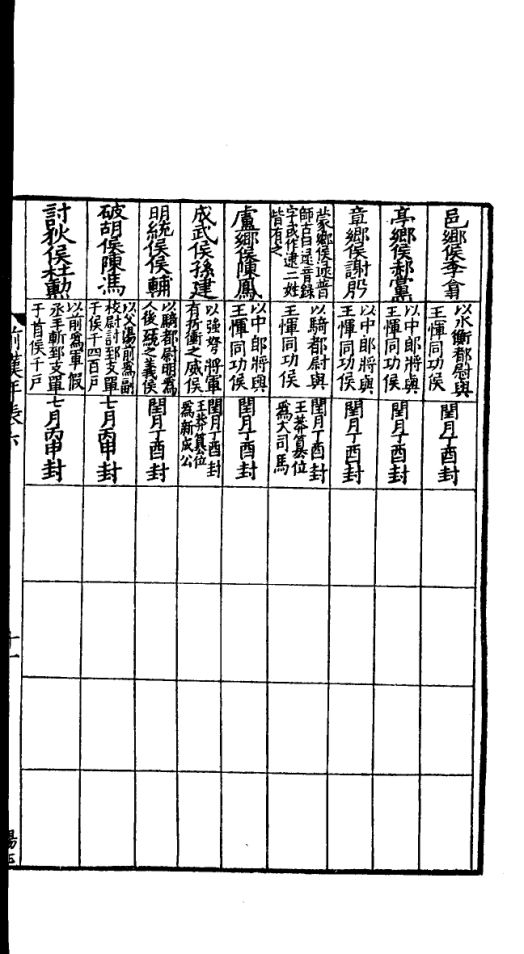 邑鄉侯李翕
以水衡都尉與
王惲同功侯
閏月丁酉封
亭鄉侯郝黨
以中郎將與
王惲同功侯
閏月丁酉封
章鄉侯謝殷
以中郎將與
王惲同功侯
閏月丁酉封
蒙鄉侯逯普
師古曰逯音錄
字或作逮二姓
皆有之
以騎都尉與
王惲同功侯
閏月丁酉封
王莽篡位
爲大司馬
盧鄉侯陳鳳
以中郎將與
王惲同功侯
閏月丁酉封
成武侯孫建
以强弩將軍
有折衝之威侯
閏月丁酉封
王莽篡位
爲新成公
明統侯侯輔
以騎都尉明爲
人後之義侯
閏月丁酉封
破胡侯陳馮
以父湯前爲副
校尉討郅支單
于侯千四百戶
七月丙申封
討狄侯杜勳
以前爲軍假
丞手斬郅支單
于首侯千戶
七月丙申封
前漢年表六
十一